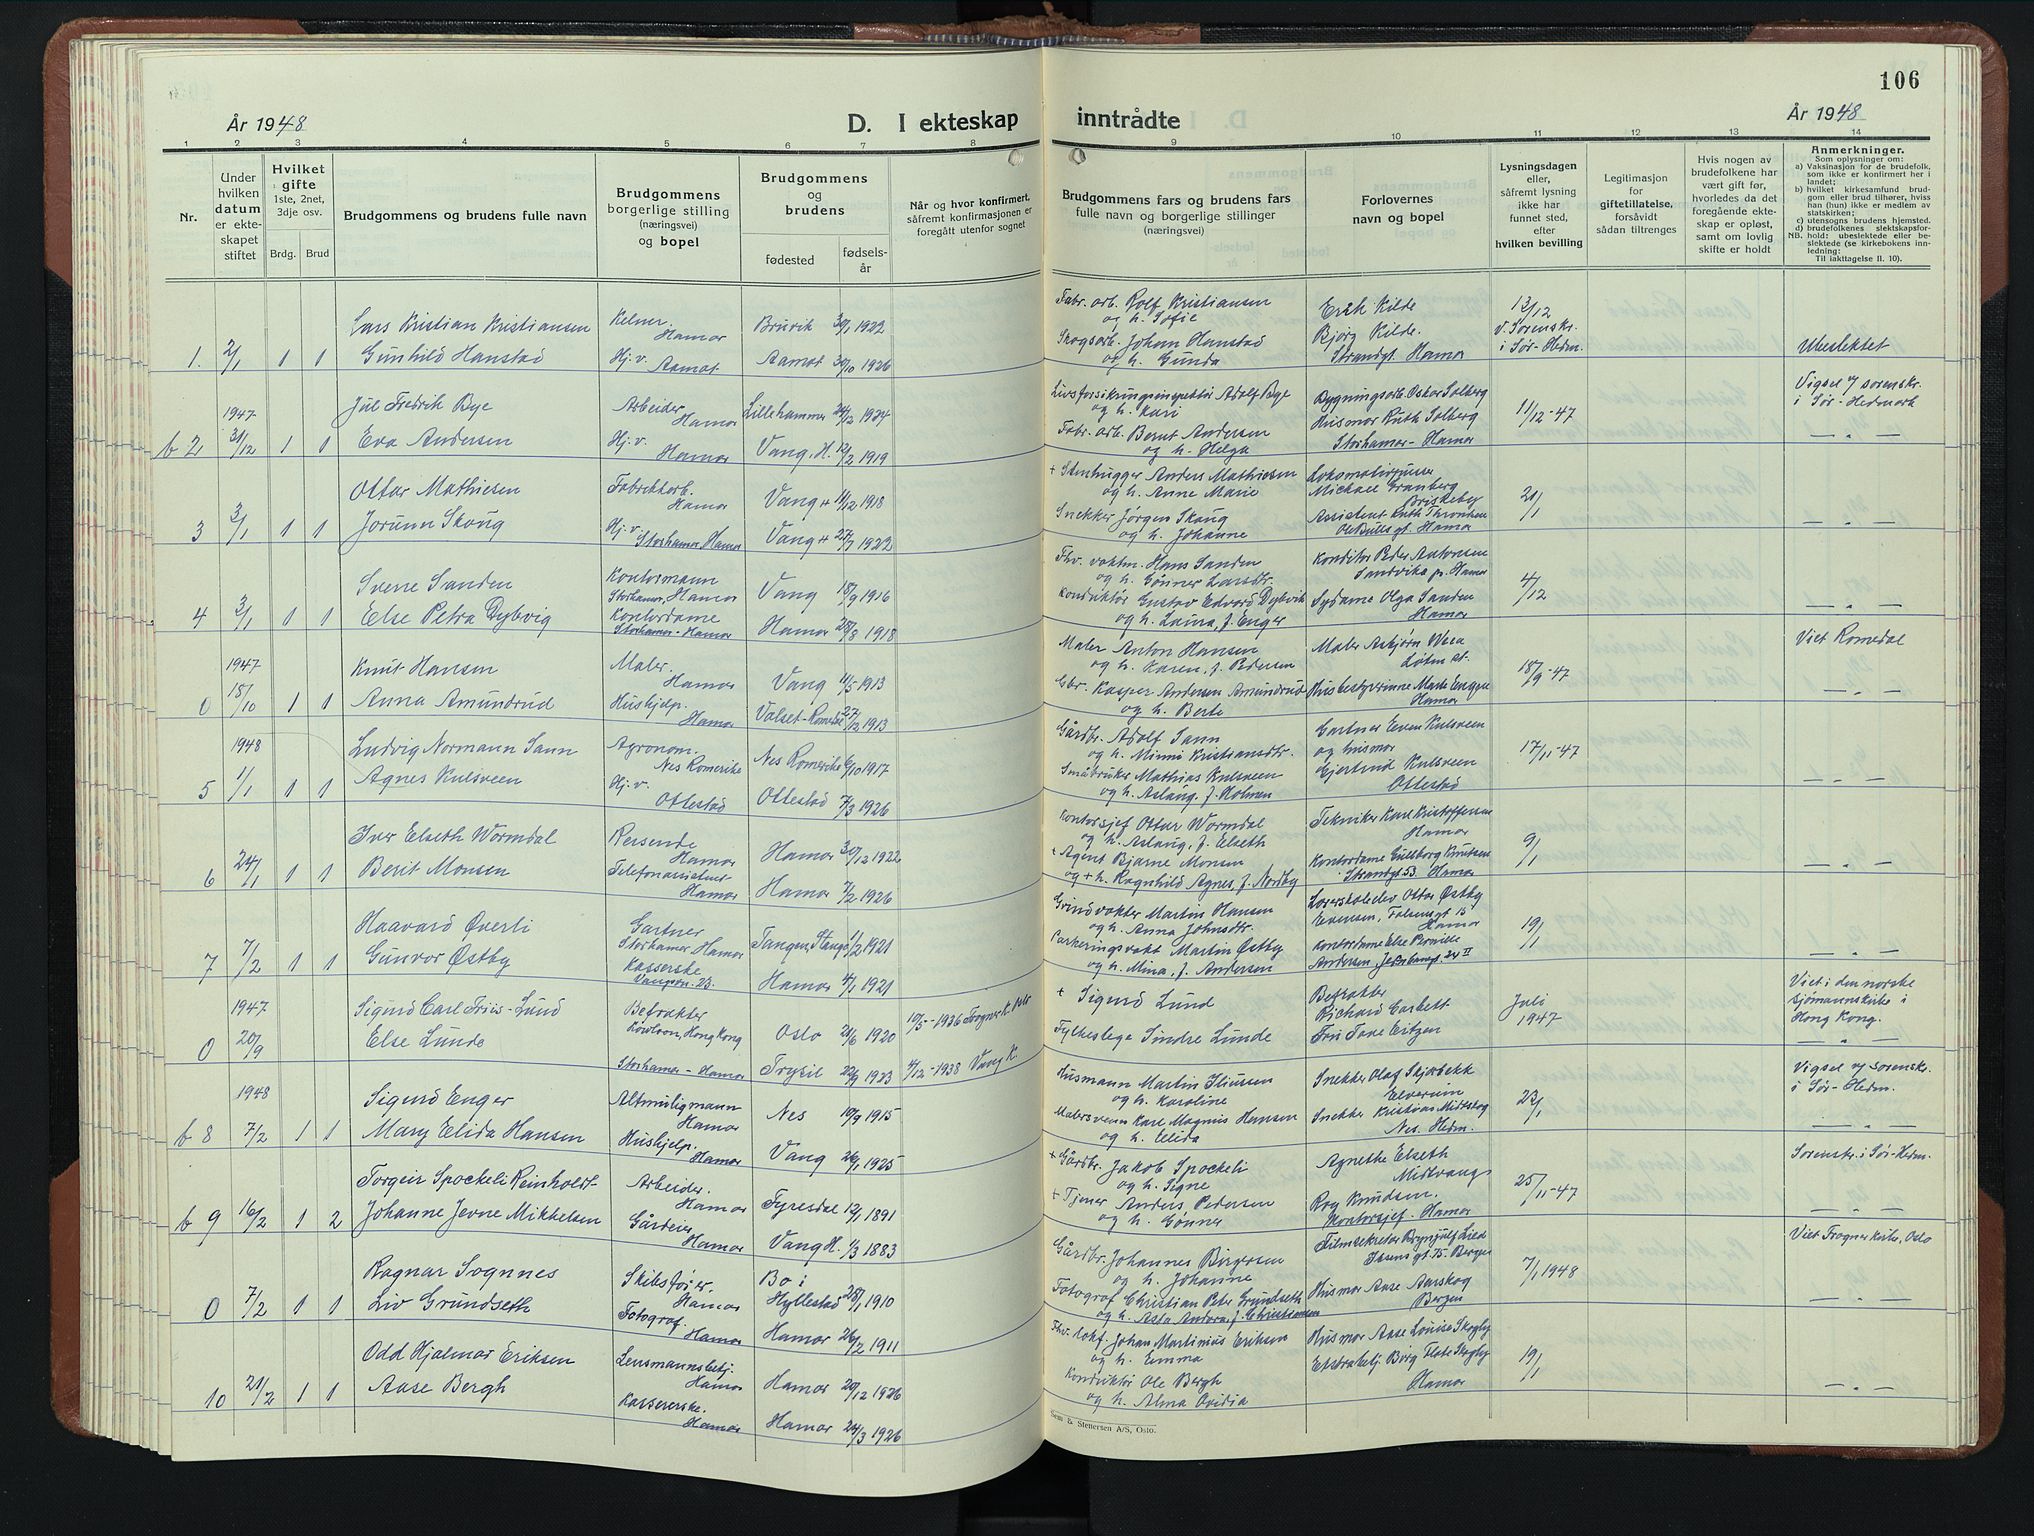 106
År 1948
D. I ekteskap inntrådte
År 1948
1 2 3 4 5 6 7 8 9 10 11 12 13 14
Nr.
Under hvilken datum er ekteskapet stiftet
Hvilket gifte 1ste, 2net, 3dje osv.
Brdg. Brud
Brudgommens og brudens fulle navn
Brudgommens borgerlige stilling (næringsvei) og bopel
Brudgommens og brudens
fødested
fødselsår
Når og hvor konfirmert, såfremt konfirmasjonen er foregått utenfor sognet
Brudgommens fars og brudens fars fulle navn og borgerlige stillinger (næringsvei)
Forlovernes navn og bopel
Lysningsdagen eller, såfremt lysning ikke har funnet sted, efter hvilken bevilling
Legitimasjon for giftetillatelse, forsåvidt sådan tiltrenges
Hvis nogen av brudefolkene har vært gift før, hvorledes da det foregående ekteskap er opløst, samt om lovlig skifte er holdt
Anmerkninger.
Som oplysninger om:
a) Vaksinasjon for de brudefolk, som ikke er konfirmert her i landet;
b) hvilket kirkesamfund brudgom eller brud tilhører, hviss han (hun) ikke er medlem av statskirken;
c) utensogns brudens hjemsted.
d) brudefolkenes slektskapsforhold: ubeslektede eller beslektede (se kirkebokens innledning;
NB.
Til iakttagelse II. 10).
1. 2/1 1 1
Lars Kristian Kristiansen
Gunhild Hanstad
Kelner. Hamar
Hj. v. Aamot
Bruvik 30/1 1922
Aamot 30/10 1926
Fabr. arb. Rolf Kristiansen
og h. Sofie
Skogsarb. Johan Hanstad
og h. Gunda
Erik Kilde
Bjørg Kilde.
Strandgt. Hamar
13/12
v. Sorenskr.
i Sør-Hedm.
Ubeslektet
b 2 1947 31/12 1 1
Jul Fredrik Bye
Eva Andersen
Arbeider Hamar
Hj. v. Hamar
Lillehammer 24/12 1924
Vang, H. 12/2 1919
Livsforsikringsinspektør Adolf Bye
og h. Kari
Fabr. arb. Bernt Andersen
og h. Helga
Bygningsarb. Oskar Solberg
Husmor Ruth Solberg
Storhamar - Hamar
11/12 - 47
Vigsel v/ sorenskr.
i Sør-Hedmark
— " —
3 3/1 1 1
Ottar Mathiesen
Jorunn Skaug
Fabrikkarb. Hamar
Hj. v. Storhamar, Hamar
Vang + 11/12 1918
Vang + 27/7 1922
+ Stenhugger Anders Mathiesen
og h. Anne Marie
Snekker Jørgen Skaug
og h. Johanne
Lokomotivpusser
Michael Granberg
Briskeby
Assistent Ruth Thronsen
Ole Bulls gt. Hamar
21/1
— " —
4 3/1 1 1
Sverre Sanden
Else Petra Dybvig
Kontormann
Storhamar, Hamar
Kontordame
Storhamar - Hamar
Vang 18/9 1916
Hamar 28/8 1918
Fhv. vaktm. Hans Sanden
og h. Gunner Larsdtr.
Konduktør Gustav Edvard Dybvik
og h. Laura, f. Enger
Konditor Peder Antonsen
Sandvika pr. Hamar
Sydame Olga Sanden
Hamar
4/12
— " —
0 1947 18/10 1 1
Knut Hansen
Anna Amundrud
Maler. Hamar
Hushjelp. Hamar
Vang 11/5 1913
Valset-Romedal 27/12 1913
Maler Anton Hansen
og h. Karen, f. Pedersen
Gbr. Kasper Andersen Amundrud
og h. Berte
Maler Asbjørn Weea
Løten st.
Husbestyrerinne Marte Enggæ
Hamar
18/9 - 47
Viet Romedal
— " —
5 1948 1/1 1 1
Ludvig Normann Sann
Agnes Kulsveen
Agronom. Nes Romerike
Hj. v. Ottestad
Nes Romerike 6/10 1917
Ottestad 7/3 1926
Gårdbr. Adolf Sann
og h. Minni Kristiansdtr.
Småbruker Mathias Kulsveen
og h. Aslaug, f. Holmen
Gartner Even Kulsveen
og husmor
Gjertrud Kulsveen
Ottestad
17/11-47
— " —
6 24/1 1 1
Iver Elseth Wormdal
Berit Monsen
Reisende Hamar
Telefonassistent Hamar
Hamar 30/12 1922
Hamar 7/2 1926
Kontorsjef Ottar Wormdal
og h. Aslaug, f. Elseth
+ Agent Bjarne Monsen
og + h. Ragnhild Agnes, f. Nordby
Tekniker Karl Kristoffersen
Hamar
Kontordame Gulborg Knutsen
Strandgt 53 Hamar
9/1
— " —
7 7/2 1 1
Haavard Øverli
Gunvor Østby
Gartner
Storhamar, Hamar
Kasserske
Vangsvn. 23.
Tangen, Stange 1/2 1921
Hamar 4/1 1921
Grindvokter Martin Hansen
og h. Anna Johnsdtr.
Parkeringsvakt Martin Østby
og h. Mina, f. Andersen
Lærerskoleelev Ottar Østby
Evensen, Falsensgt 15
Hamar
Kontordame Else Pernille
Andersen,
19/1
— " —
0 1947 20/9
Sigurd Carl Friis-Lund
Else Lunde
Befrakter
Kowloon, Hong Kong
Storhamar - Hamar
Oslo 21/6 1920
Trysil 22/9 1923
10/5-1936 Frogner K. Oslo
4/12-1938 Vang K.
+ Sigurd Lund
Fylkeslege Sindre Lunde
Befrakter
Richard Corbett
Fru Tove Eitzen
Juli 1947
Viet i den norske
sjømannskirke i
Hong Kong.
b 8 1948 7/2 1 1
Sigurd Enger
Mary Elida Hansen
Altmuligmann
Hamar
Hushjelp. Hamar
Nes 10/9 1915
Vang 26/1 1925
Husmann Martin Iliussen
og h. Karoline
Malersvenn Karl Magnus Hansen
og h. Elida
Snekker Olaf Skjærbekk
Elverum
Snekker Kristian Midtskog
Nes. Hedm.
23/1
Vigsel v/ sorenskr.
i Sør-Hedm.
— " —
b 9 16/2 1 2
Torgeir Spockeli Reinholdt-
Johanne Jevne Mikkelsen
Arbeider. Hamar
Gårdeier Hamar
Fyresdal 12/1 1891
Vang H. 1/3 1883
+ Gårdbr. Jakob Spockeli
og h. Signe
+ Tjener Anders Pedersen
og h. Gunner
Agnethe Elseth
Midtvangs
Roy Knudsen.
Kontorsjef. Hamar
25/11-47
Sorenskr. i Sør-Hedm.
— " —
0 7/2 1 1
Ragnar Sognnes
Liv Grundseth
Skibsfører. Hamar
Fotograf. Hamar
Bø i Hyllestad 28/1 1910
Hamar 26/2 1911
Gårdbr. Johannes Birgersen
og h. Johanne
Fotograf Christian Peter Grundseth
og h. Asta Andora, f. Christiansen
Filmsekretær Brynjulf Lied
Ibsens gt. 75. Bergen
Husmor Aase Aarskog
Bergen
7/1 1948
Viet Frogner kirke, Oslo
10 21/2 1 1
Odd Hjalmar Eriksen
Aase Bergh
Lensmannsbetj. Hamar
Kassererske. Hamar
Hamar 20/12 1926
Hamar 24/3 1926
Fhv. lokf. Johan Martinius Eriksen
og h. Emma
Konduktør Ole Bergh
og h. Alma Ovidia
Husmor Aase Louise Skogby
Ekstrabetj. Birg Flate Skogby
Hamar
19/1
— " —
Sem & Stenersen A/S, Oslo.